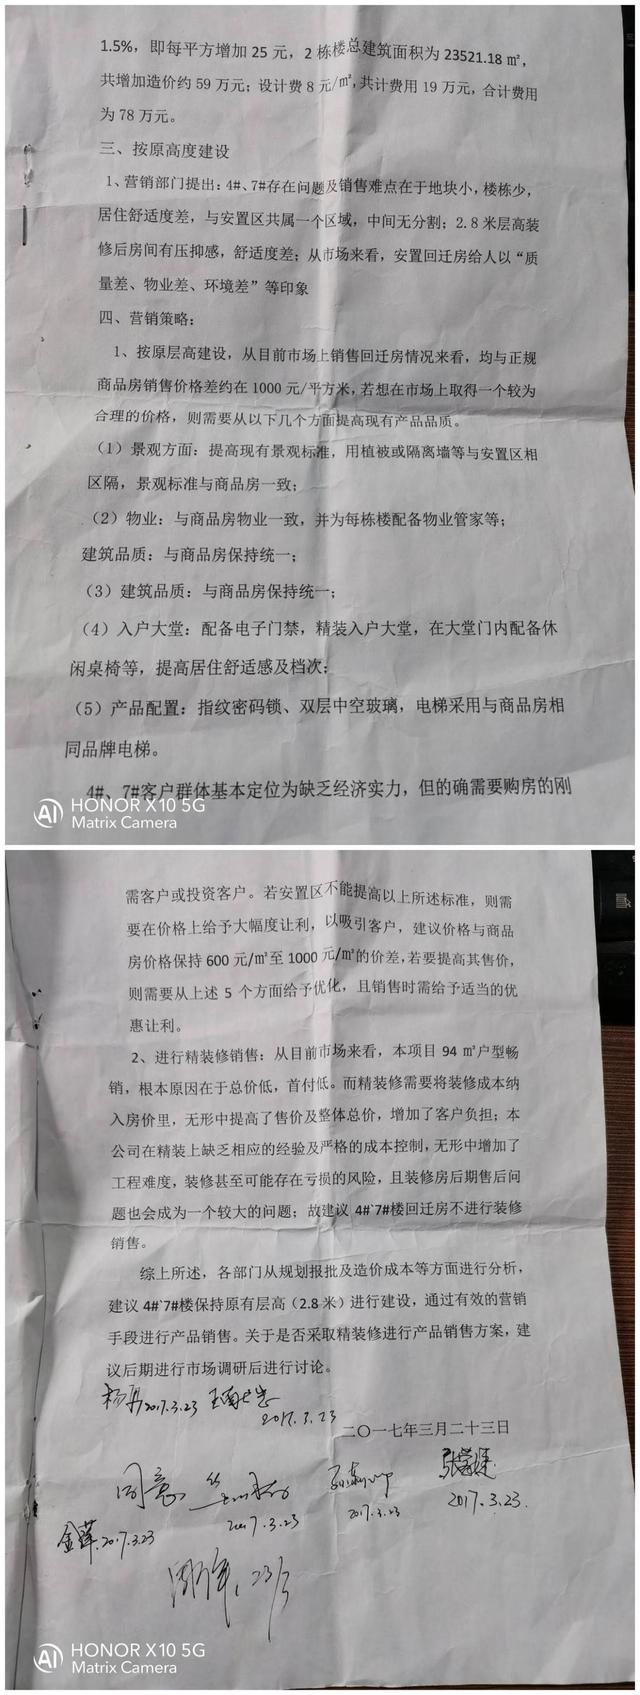 1.5%，即每平方增加 25 元，2 栋楼总建筑面积为 23521.18 ㎡，
共增加造价约 59 万元；设计费 8 元/㎡,共计费用 19 万元，合计费用
为 78 万元。
三、按原高度建设
1、营销部门提出：4#、7#存在问题及销售难点在于地块小，楼栋少，
居住舒适度差，与安置区共属一个区域，中间无分割；2.8 米层高装
修后房间有压抑感，舒适度差；从市场来看，安置回迁房给人以“质
量差、物业差、环境差”等印象
四、营销策略：
1、按原层高建设，从目前市场上销售回迁房情况来看，均与正规
商品房销售价格差约在 1000 元/平方米，若想在市场上取得一个较为
合理的价格，则需要从以下几个方面提高现有产品品质。
（1）景观方面：提高现有景观标准，用植被或隔离墙等与安置区相
区隔，景观标准与商品房一致；
（2）物业：与商品房物业一致，并为每栋楼配备物业管家等；
建筑品质：与商品房保持统一；
（3）建筑品质：与商品房保持统一；
（4）入户大堂：配备电子门禁，精装入户大堂，在大堂门内配备休
闲桌椅等，提高居住舒适感及档次；
（5）产品配置：指纹密码锁、双层中空玻璃，电梯采用与商品房相
同品牌电梯。
4#、7#客户群体基本定位为缺乏经济实力，但的确需要购房的刚
HONOR X10 5G
Matrix Camera
需客户或投资客户。若安置区不能提高以上所述标准，则需
要在价格上给予大幅度让利，以吸引客户，建议价格与商品
房价格保持 600 元/㎡至 1000 元/㎡的价差，若要提高其售价，
则需要从上述 5 个方面给予优化，且销售时需给予适当的优
惠让利。
2、进行精装修销售：从目前市场来看，本项目 94 ㎡户型畅
销，根本原因在于总价低，首付低。而精装修需要将装修成本纳
入房价里，无形中提高了售价及整体总价，增加了客户负担；本
公司在精装上缺乏相应的经验及严格的成本控制，无形中增加了
工程难度，装修甚至可能存在亏损的风险，且装修房后期售后问
题也会成为一个较大的问题；故建议 4#`7#楼回迁房不进行装修
销售。
综上所述，各部门从规划报批及造价成本等方面进行分析，
建议 4#`7#楼保持原有层高（2.8 米）进行建设，通过有效的营销
手段进行产品销售。关于是否采取精装修进行产品销售方案，建
议后期进行市场调研后进行讨论。
2017.3.23
2017.3.23
二〇一七年三月二十三日
同意
2017.3.23
2017.3.23
2017.3.23
2017.3.23
23/3
HONOR X10 5G
Matrix Camera